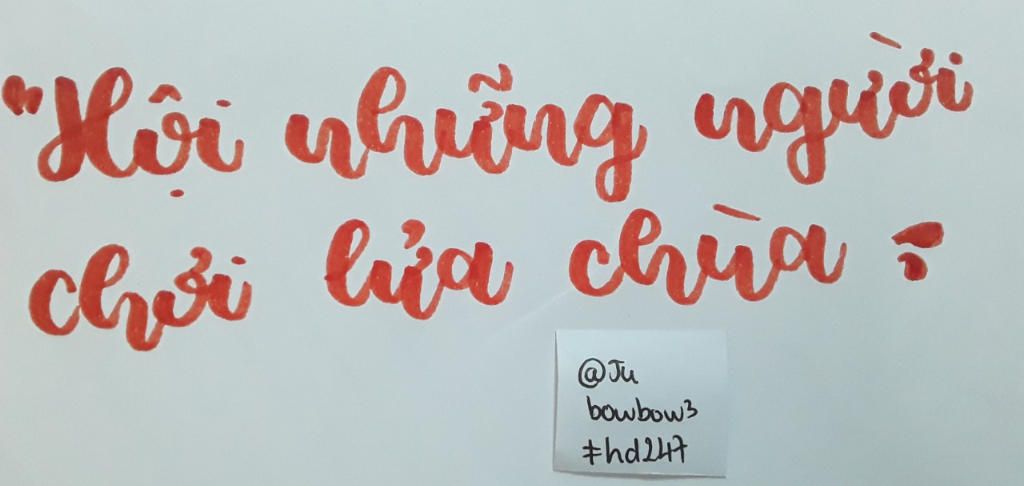 "Hội những người
chơi lửa chùa"
@Ju
bowbow3
#hd247